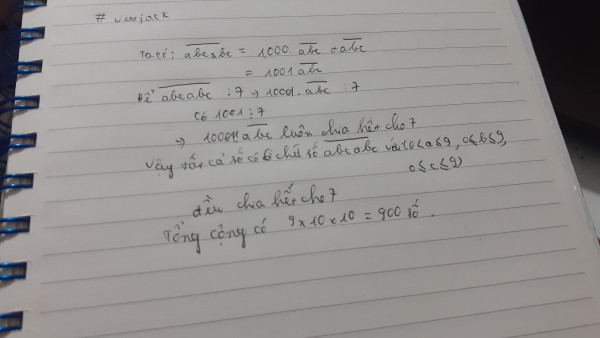 # verjack
Ta có: abcabc = 1000. abc + abc
= 1001 abc
Để abcabc ⋮ 7 → 1001. abc ⋮ 7
Có 1001 ⋮ 7
→ 1001. abc luôn chia hết cho 7
Vậy tất cả số có 6 chữ số abcabc với (0 < a ≤ 9, 0 ≤ b ≤ 9,
0 ≤ c ≤ 9)
đều chia hết cho 7
Tổng cộng có 9 x 10 x 10 = 900 số.